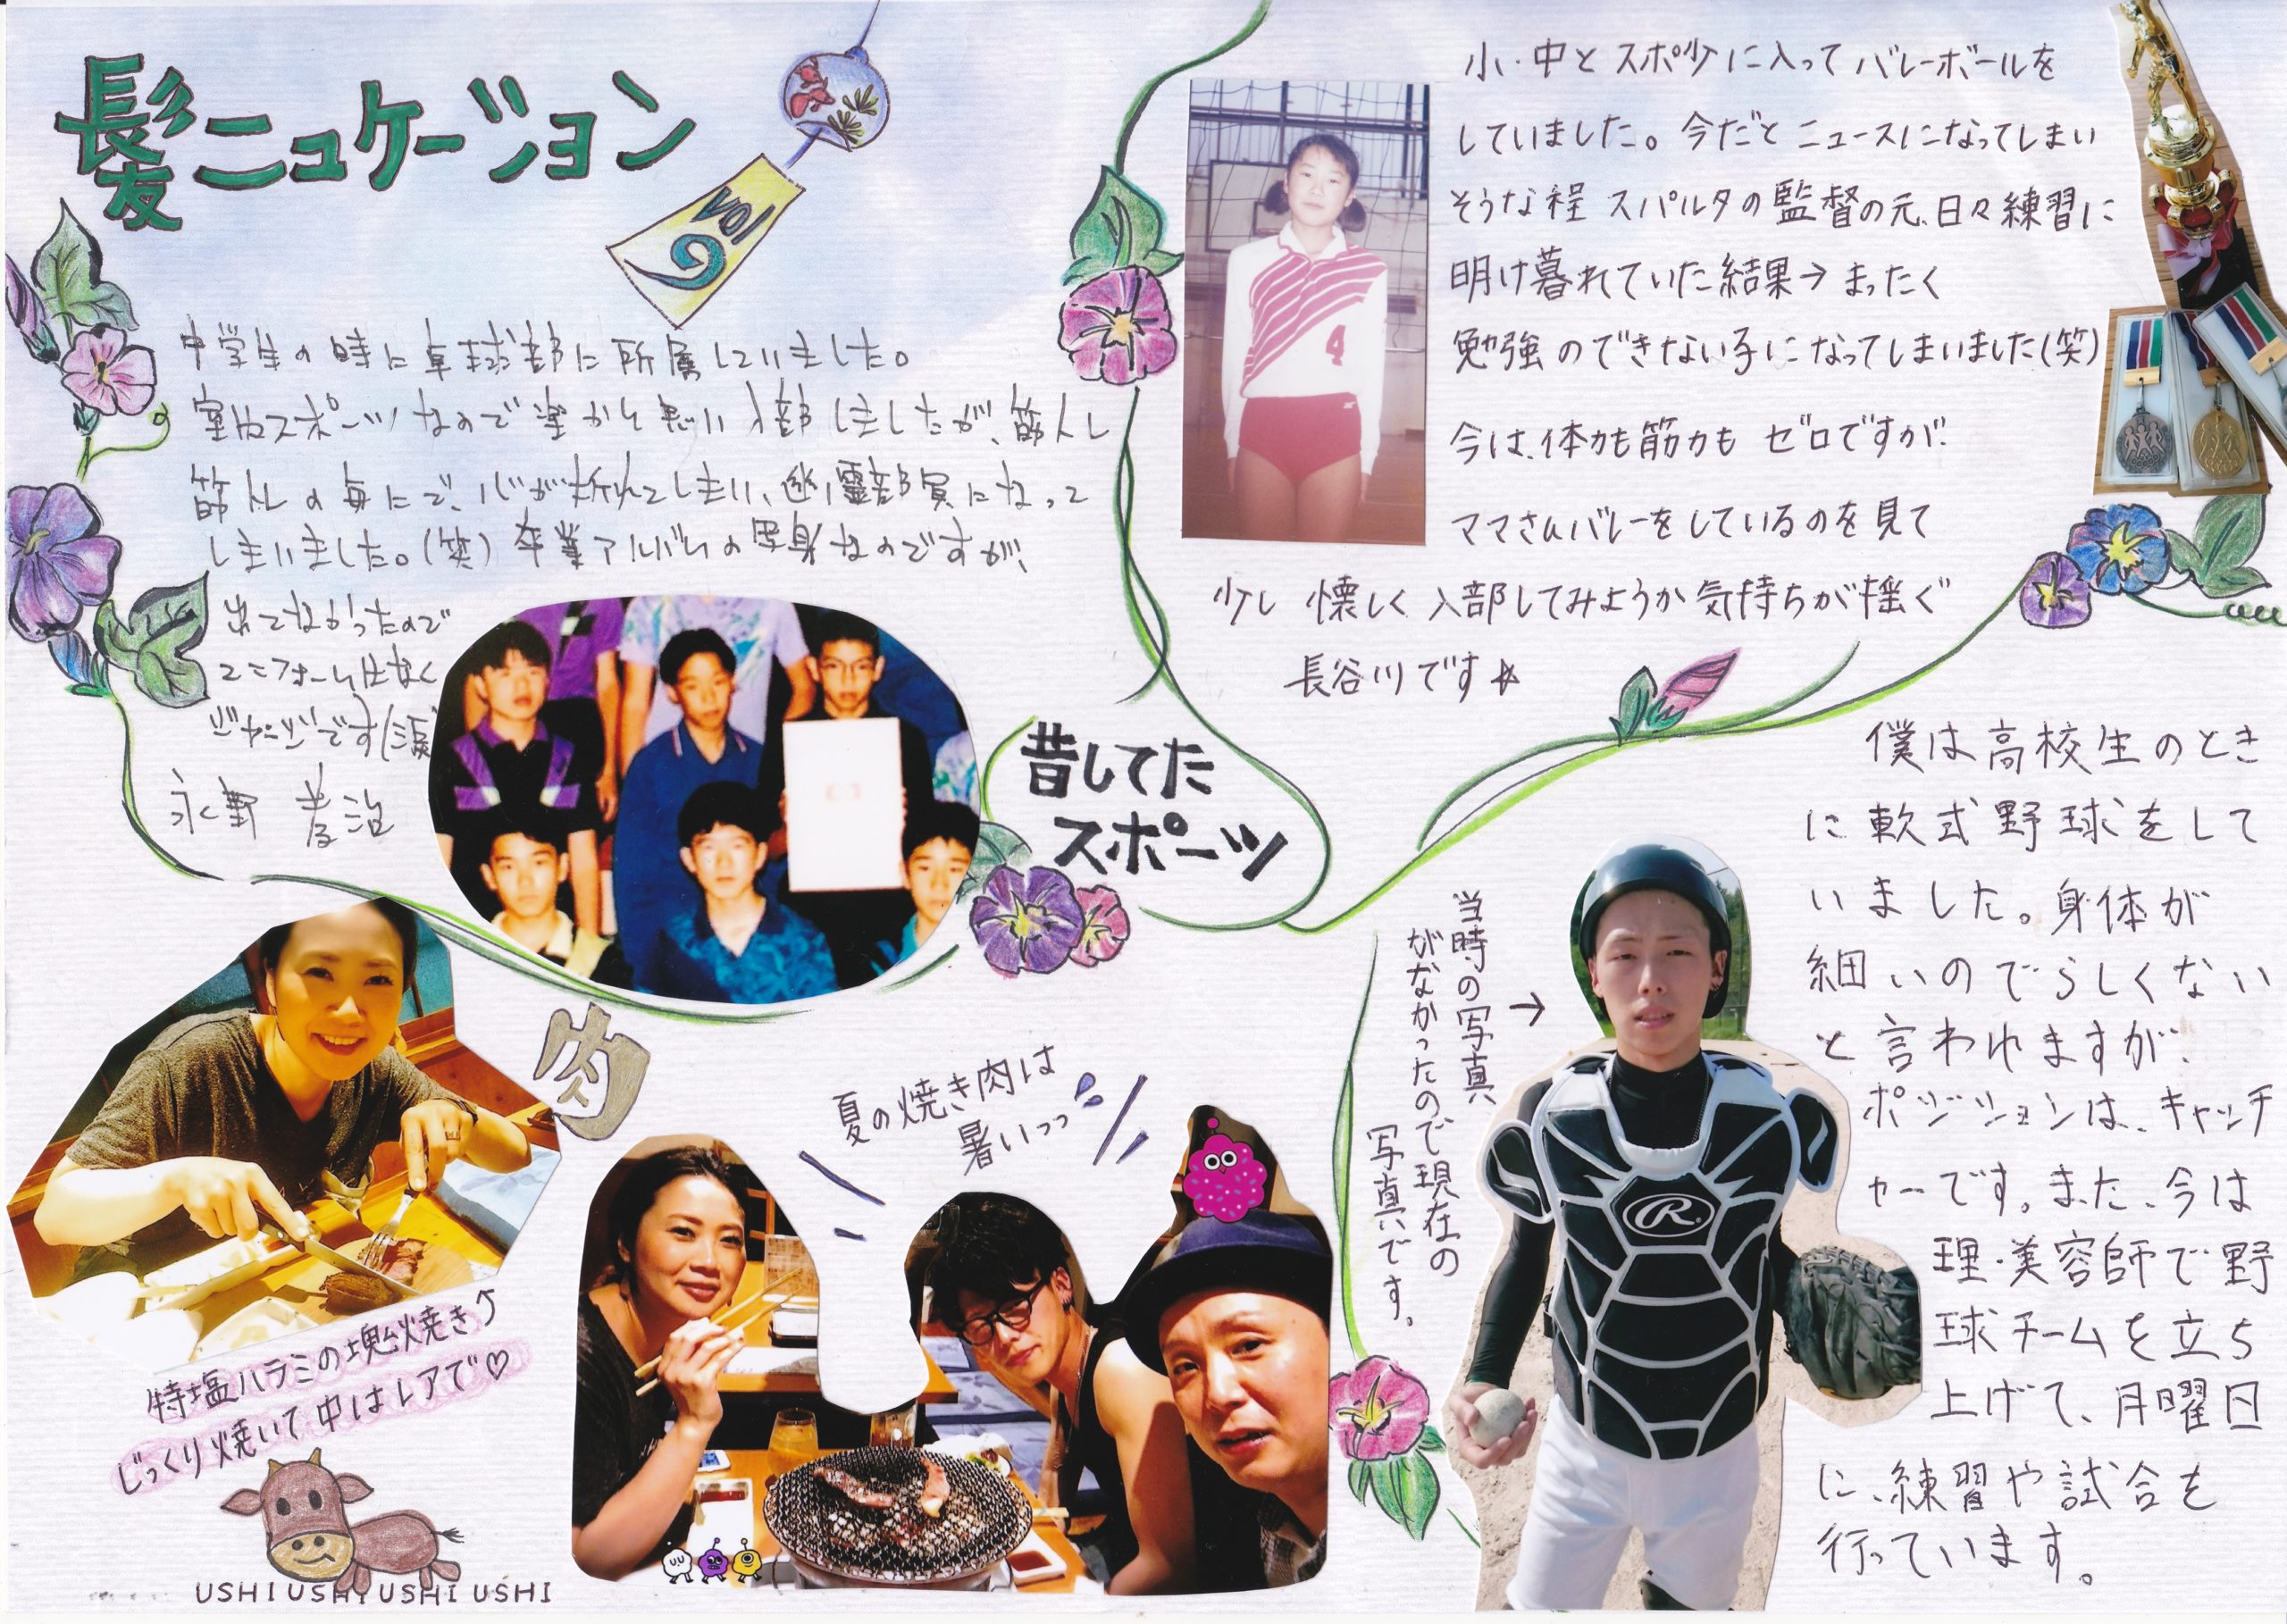 髪ニュケーション
vol 9
中学生の時に卓球部に所属していました。
室内スポーツなので楽かと思い入部しましたが、筋トレ
筋トレの毎日で、心が折れてしまい、幽霊部員になって
しまいました。(笑) 卒業アルバムの写真なのですが、
出てなかったので
ユニフォームはなく
ジャージです(涙)
永野 孝治
小・中とスポ少に入ってバレーボールを
していました。今だとニュースになってしまい
そうな程 スパルタの監督の元、日々練習に
明け暮れていた結果→まったく
勉強のできない子になってしまいました(笑)
今は、体力も筋力も ゼロですが、
ママさんバレーをしているのを見て
少し 懐しく 入部してみようか気持ちが揺ぐ
長谷川です☆
4
昔してた
スポーツ
僕は高校生のとき
に軟式野球をして
いました。身体が
細いのでらしくない
と言われますが、
ポジションは、キャッチ
ャーです。また、今は
理・美容師で野
球チームを立ち
上げて、月曜日
に、練習や試合を
行っています。
当時の写真
がなかったので現在の
写真です。
→
R
肉
夏の焼き肉は
暑いっっ
特塩ハラミの塊焼き⤴
じっくり焼いて中はレアで♡
USHI USHI USHI USHI